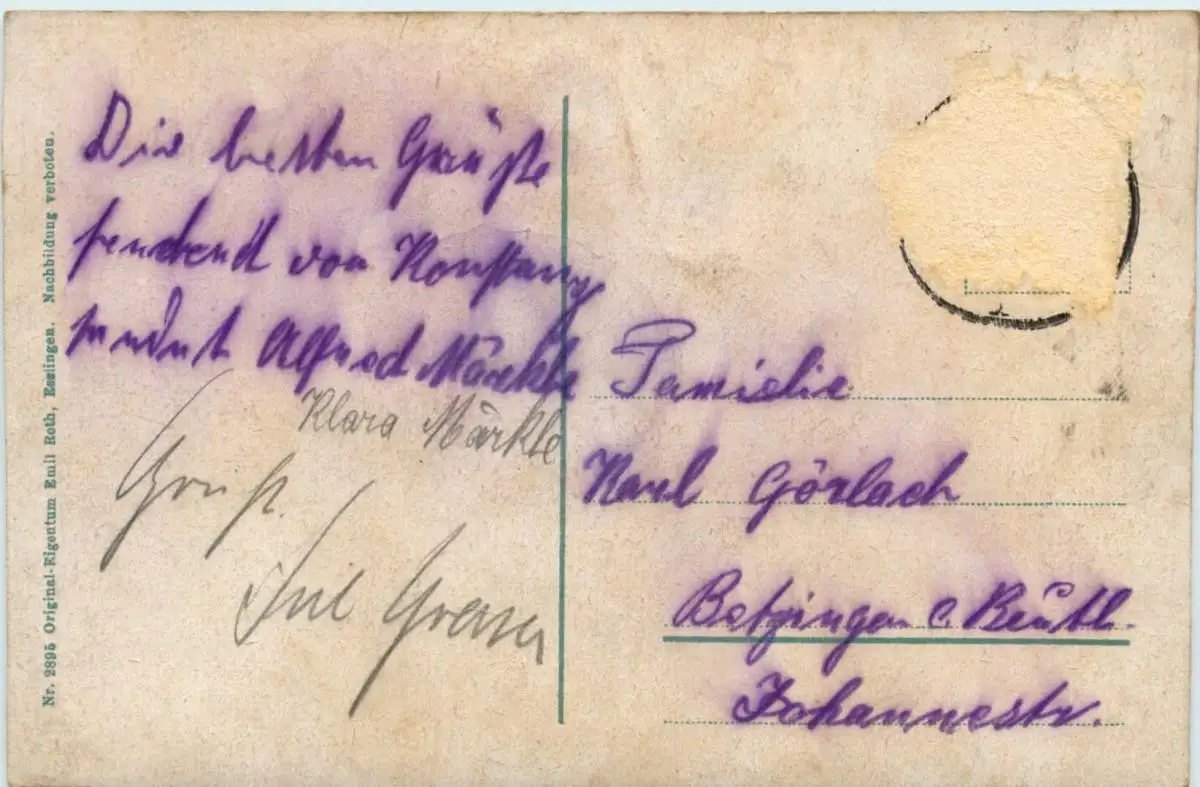 Nr. 2895 Original-Eigentum Emil Roth, Esslingen. Nachbildung verboten.
Die besten Grüße
sendend von Konstanz
sendet Alfred Märkle
Klara Märkle
Gruß.
Familie
Karl Görlach
Betzingen b. Reutl.
Johannestr.